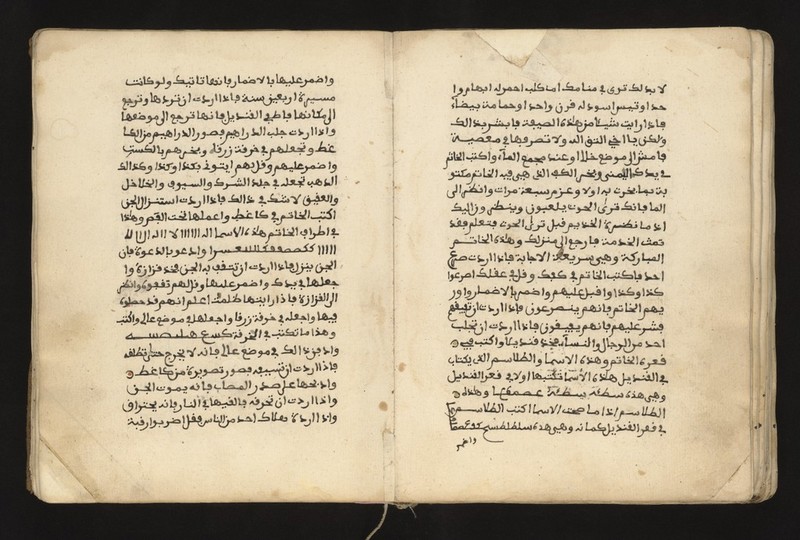 لا بد لك ترى في منامك اما كلب احمر له ابهام وا
حدا وتيس اسود له فرن واحد او حمامة بيضاء
فاذا رايت شيئا من هذه الصيفة فابشر بذالك
ولكن يا اخي اتق الله ولا تصرفها في معصية
فامش الى موضع خلا او عند مجمع الماء واكتب الخاتم
في يدك اليمنى وبخر الكف التي هي فيه الخاتم مكتو
بة بما بخرت به اولا وعزم سبعة مرات وانظر الى
الما فانك ترى الحوت يلعبون وينظرون اليك
تمت الخدمة فارجع الى منزلك وهذه الخاتم
المباركة وهي سريعة الاجابة فاذا اردت صرع
احد فاكتب الخاتم في كفك وقل في عقلك اصرعوا
كذا وكذا واقبل عليهم واضمر بالاضمار واور
يهم الخاتم فانهم ينصرعون فاذا اردت ان تفيفهم
فبشر عليهم فانهم يفيفون فاذا اردت ان تجلب
احد من الرجال والنسا فخذ فنديلا واكتب في
فعره الخاتم وهذه الاسما والطلاسم التي يكتاب
في الفنديل هذه الأسما تكتبها اولا في فعر الفنديل
وهي هذه
الطلاسم اذا ما صحت الاسما اكتب الطلاسم
في فعر الفنديل كمانه وهي هذه
واضمر
واضمر عليها بالاضمار فانها تاتيك ولو كانت
مسيرة اربعين سنة فاذا اردت ان تردها وترجع
الى مكانها فاطفي الفنديل فانها ترجع الى موضعها
واذا اردت جلب الدراهم فصور الدراهم من الكا
غط وتجعلهم في خرفة زرفا وبخرهم بالكسبر
واضمر عليهم وفل لهم ايتوني بكذا وكذا وكذالك
الذهب تجعله في جلد الشرك والسيوف والخلاخل
والعفيف لا تشك في ذالك فاذا اردت استنزال الجن
اكتب الخاتم في كاغط واعملها تحت الفصر وهذا
في اطراف الخاتم هذه الاسما اله لا اله الا الله
وادعو بالدعوة فان
الجن ينزل فاذا اردت ان تثفف به الجن فخذ فزازة وا
جعلها في يدك واضمر عليها وفل لهم ثففوه وانظر
الى الفزازة فاذا رايتها ظلمت اعلم انهم فد حصلوه
فيها واجعله في خرفة زرفا واجعلها في موضع عالي واكتب
وهذا ما تكتب في الخرفة
واد في ذالك في موضع عالي فانه لا يخرج حتى تطلفه
فاذا اردت ان تسيبه فصور تصويرة من كاغط
واذبحها على صدر المصاب فانه يموت الجن
واذا اردت ان تحرفه فالفيها في النار فانه يحتراف
واذا اردت هلاك احد من الناس ففل اضربوا رفبة